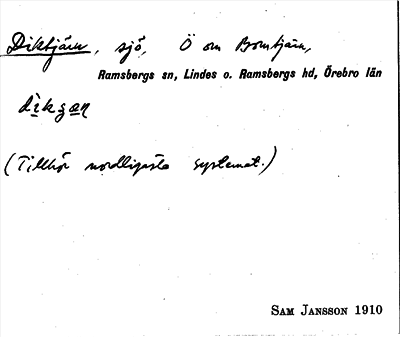 Diktjärn, sjö, Ö om Bromtjärn,
Ramsbergs sn, Lindes o. Ramsbergs hd, Örebro län
(Tillhör nordligaste systemet.)
SAM JANSSON 1910